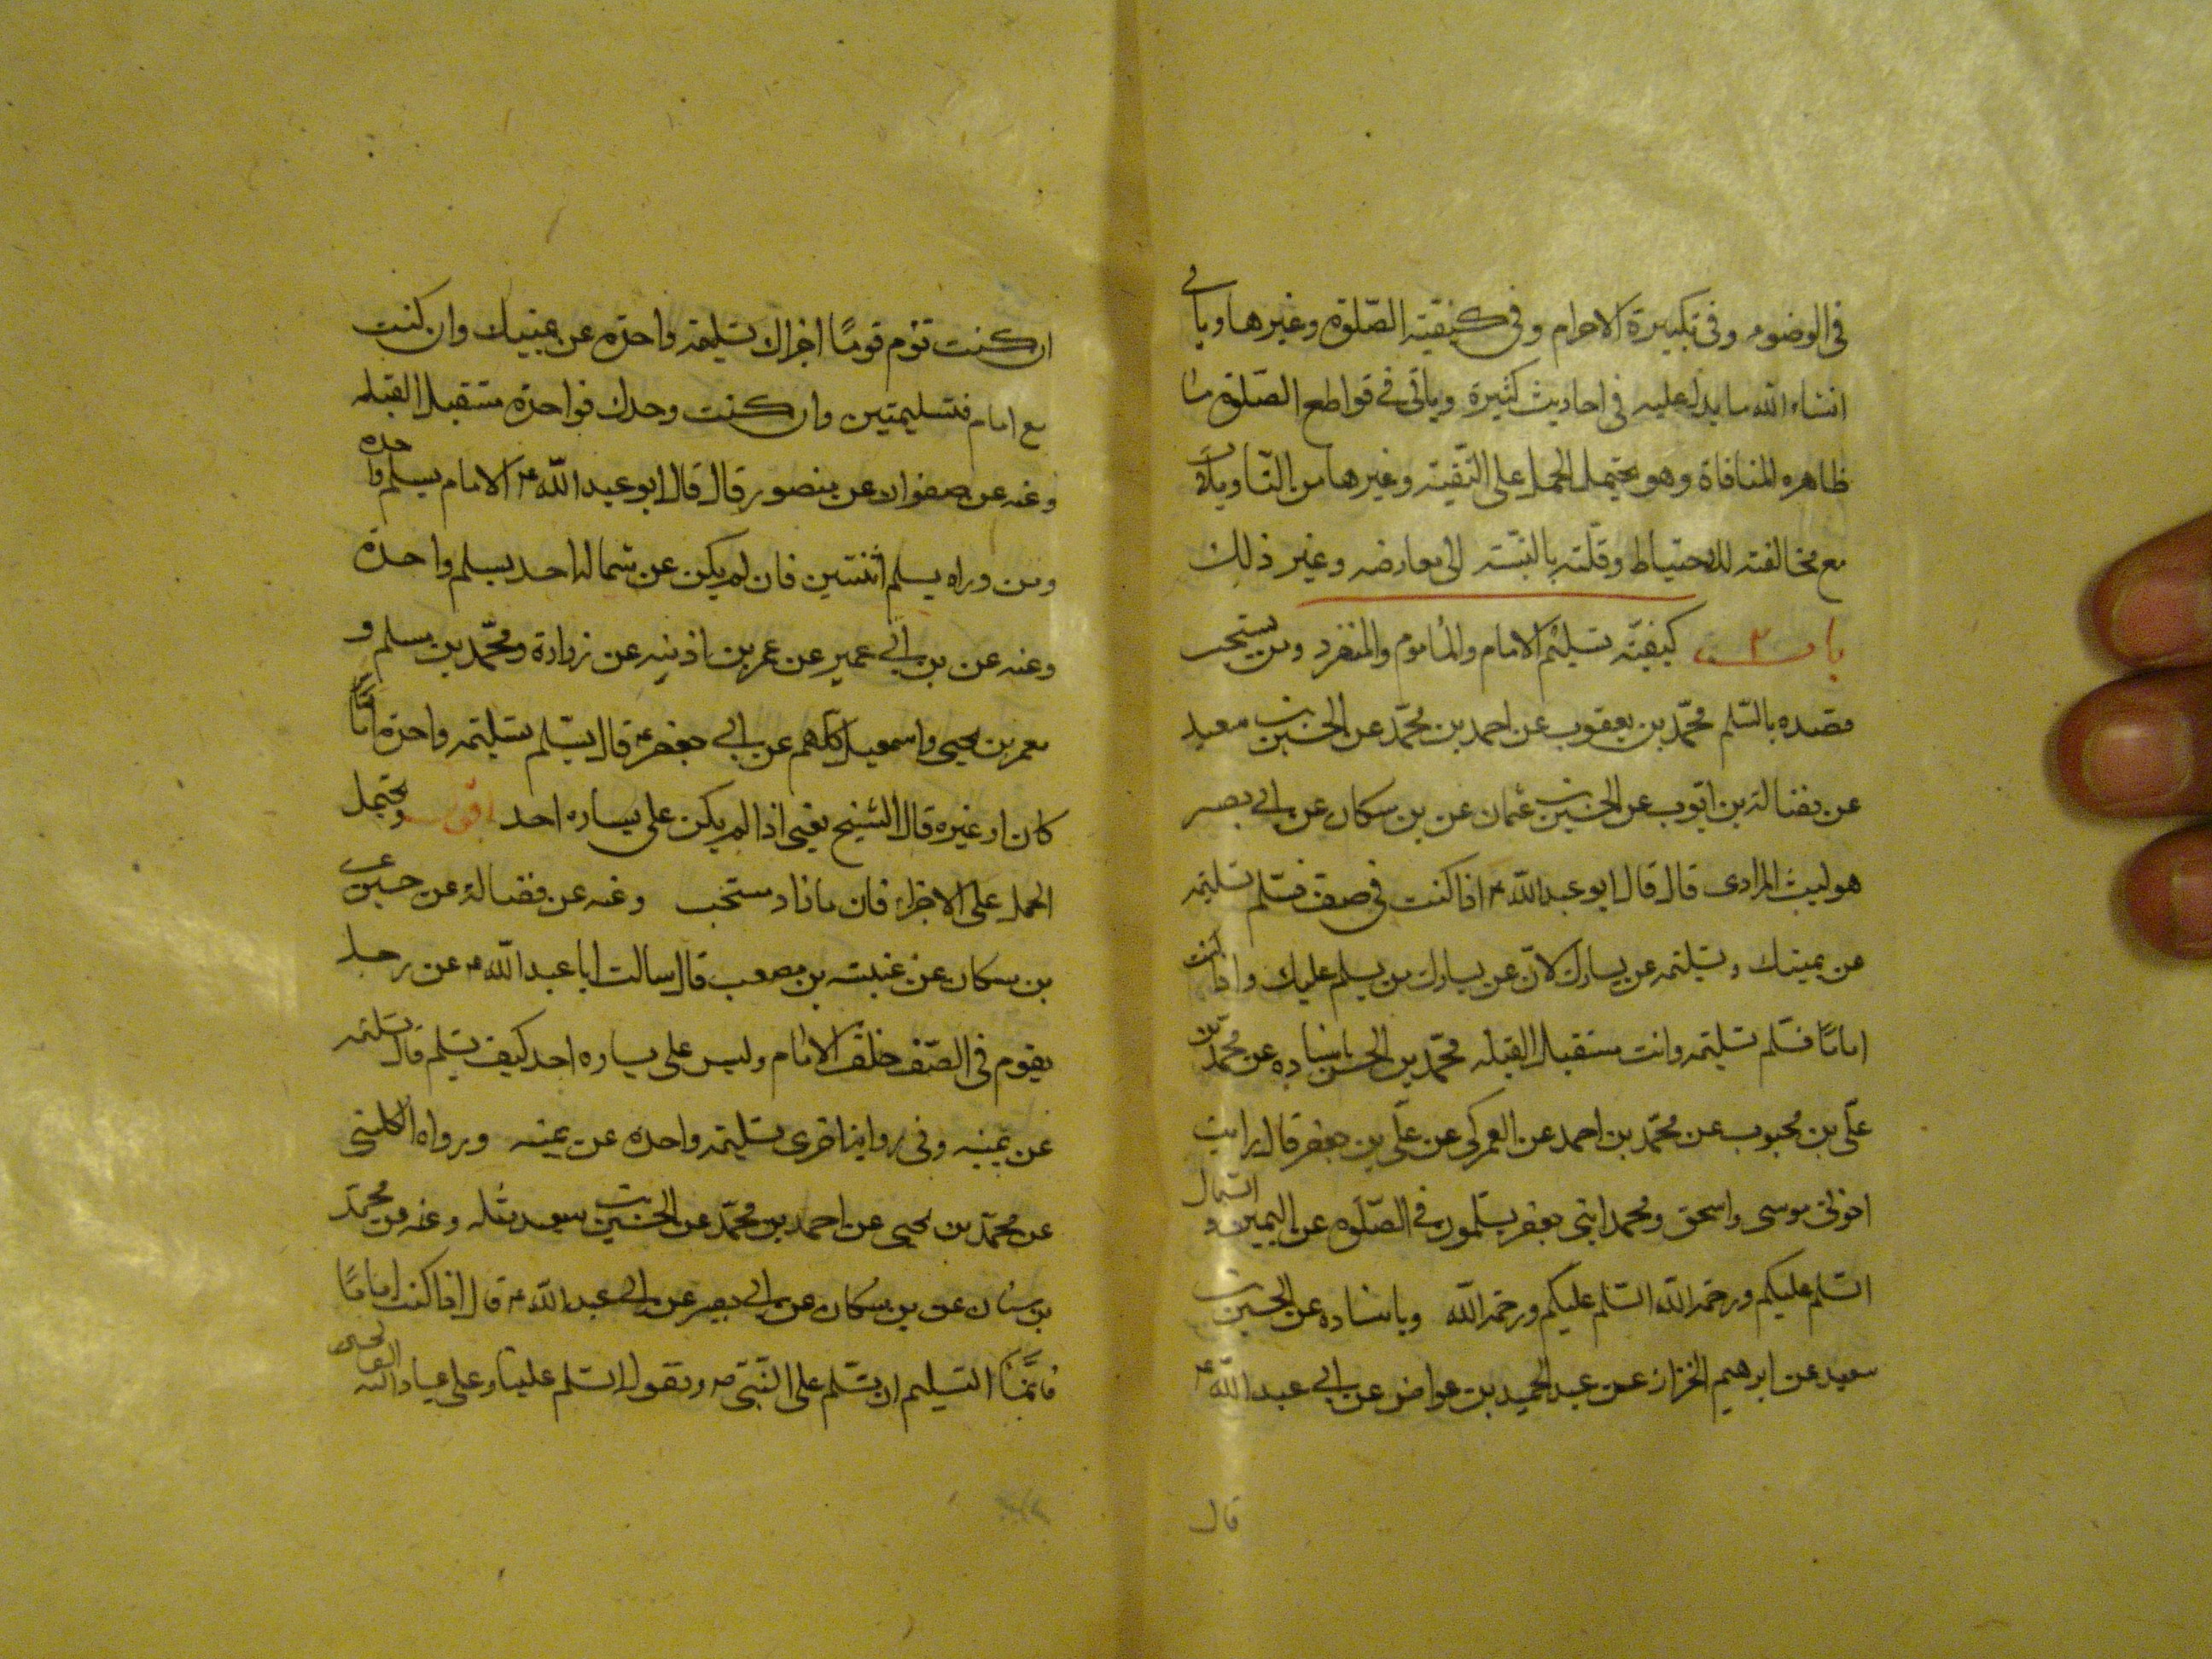 في الوضوء وفي تكبيرة الاحرام وفي كيفيته الصلوة وغيرها وياتي
انشاء الله ما يدل عليه في احاديث كثيرة وياتي في قواطع الصلوة ما
ظاهره المنافاة وهو يحتمل الحمل على التقيته وغيرها من التاويلات
مع مخالفته للاحتياط وقلته بالنسته الى معارضه وغير ذلك
باب ٢ كيفيته تسليم الامام والماموم والمنفرد ومن يستحب
قصده بالسلم محمد بن يعقوب عن احمد بن محمد عن الحسين بن سعيد
عن فضالة بن ايوب عن الحسين بن عثمان عن بن مسكان عن ابي بصير
هو ليث المرادى قال قال ابو عبد الله ع اذا كنت في صف فسلم تسليمه
عن يمينك وتسليمه عن يسارك لان عن يسارك من يسلم عليك واذا كنت
اماما فسلم تسليمه وانت مستقبل القبله محمد بن الحسن باسناده عن محمد بن
على بن محبوب عن محمد بن احمد عن العمركى عن على بن جعفر قال رايت
اخوتى موسى واسحق ومحمد ابنى جعفر يسلمون في الصلوه عن اليمين والشمال
السلم عليكم ورحمة الله السلم عليكم ورحمة الله وباسناده عن الحسين بن
سعيد عن ابرهيم الخزاز عن عبد الحميد بن عواض عن ابي عبد الله ع
قال
ان كنت تؤم قوما اجزاك تسليمه واحدة عن يمينك وان كنت
مع امام فتسليمتين وان كنت وحدك فواحدة مستقبل القبله
وعنه عن صفوان عن منصور قال قال ابو عبد الله ع الامام يسلم واحده
ومن وراه يسلم اثنتين فان لم يكن عن شماله احد يسلم واحدة
وعنه عن بن ابي عمير عن عمر بن اذينه عن زرارة ومحمد بن مسلم و
معمر بن يحيى واسمعيل كلهم عن ابي جعفر ع قال يسلم تسليمه واحدة اماما
كان او غيره قال الشيخ يعنى اذا لم يكن على يساره احد اقول ويحتمل
الحمل على الاجزاء فان ما زاد مستحب وعنه عن فضالة عن حسين عن
بن مسكان عن عنبسه بن مصعب قال سالت ابا عبد الله ع عن رجل
يقوم في الصف خلف الامام وليس على يساره احد كيف يسلم قال تسليمه
عن يمينه وفي رواية اخرى تسليمه واحده عن يمينه ورواه الكلينى
عن محمد بن يحيى عن احمد بن محمد عن الحسين بن سعيد مثله وعنه عن محمد
بن سنان عن بن مسكان عن ابي بصير عن ابي عبد الله ع قال اذا كنت اماما
فانما التسليم ان تسلم على النبى ص وتقول السلم علينا وعلى عباد الله الصالحين